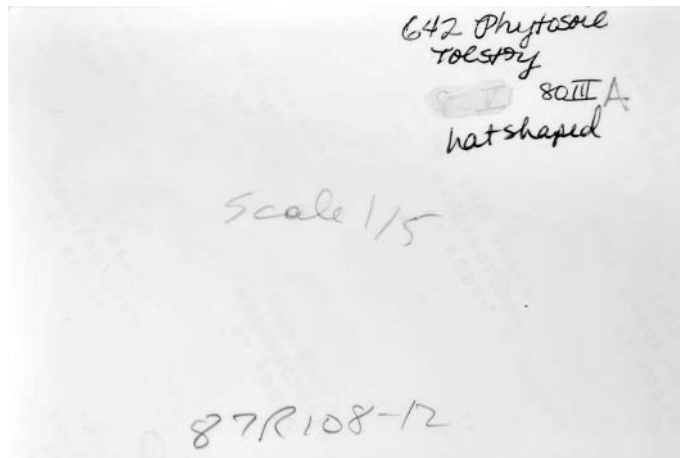 642 Phytosoil
Tolstoy
80III A
hatshaped
Scale 1/5
87R108-12